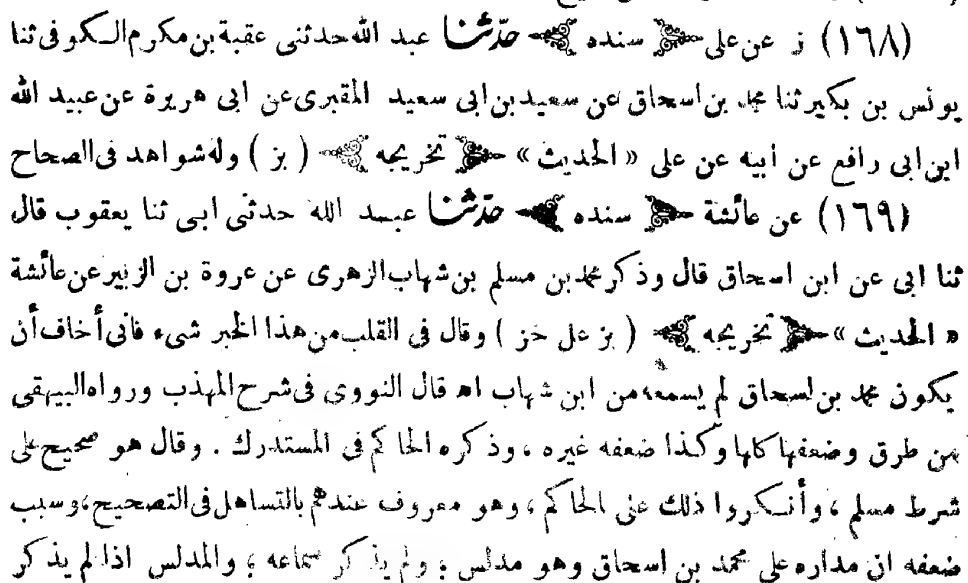 (١٦٨) ز عن على ﴿ سنده ﴾ حدّثنا عبد الله حدثنى عقبة بن مكرم الكوفى ثنا
يونس بن بكير ثنا محمد بن اسحاق عن سعيد بن ابى سعيد المقبرى عن ابى هريرة عن عبيد الله
ابن ابى رافع عن أبيه عن على « الحديث » ﴿ تخريجه ﴾ ( بز ) وله شواهد فى الصحاح
(١٦٩) عن عائشة ﴿ سنده ﴾ حدّثنا عبد الله حدثى ابى ثنا يعقوب قال
ثنا ابى عن ابن اسحاق قال وذكر محمد بن مسلم بن شهاب الزهرى عن عروة بن الزبير عن عائشة
« الحديث » ﴿ تخريجه ﴾ ( بز عل خز ) وقال فى القلب من هذا الخبر شىء فانى أخاف أن
يكون محمد بن اسحاق لم يسمعه من ابن شهاب اه قال النووى فى شرح المهذب ورواه البيهقى
من طرق وضعفها كلها وكذا ضعفه غيره ، وذكره الحاكم فى المستدرك . وقال هو صحيح على
شرط مسلم ، وأنكروا ذلك على الحاكم ، وهو معروف عندهم بالتساهل فى التصحيح ، وسبب
ضعفه ان مداره على محمد بن اسحاق وهو مدلس ، ولم يذكر سماعه ، والمدلس اذا لم يذكر